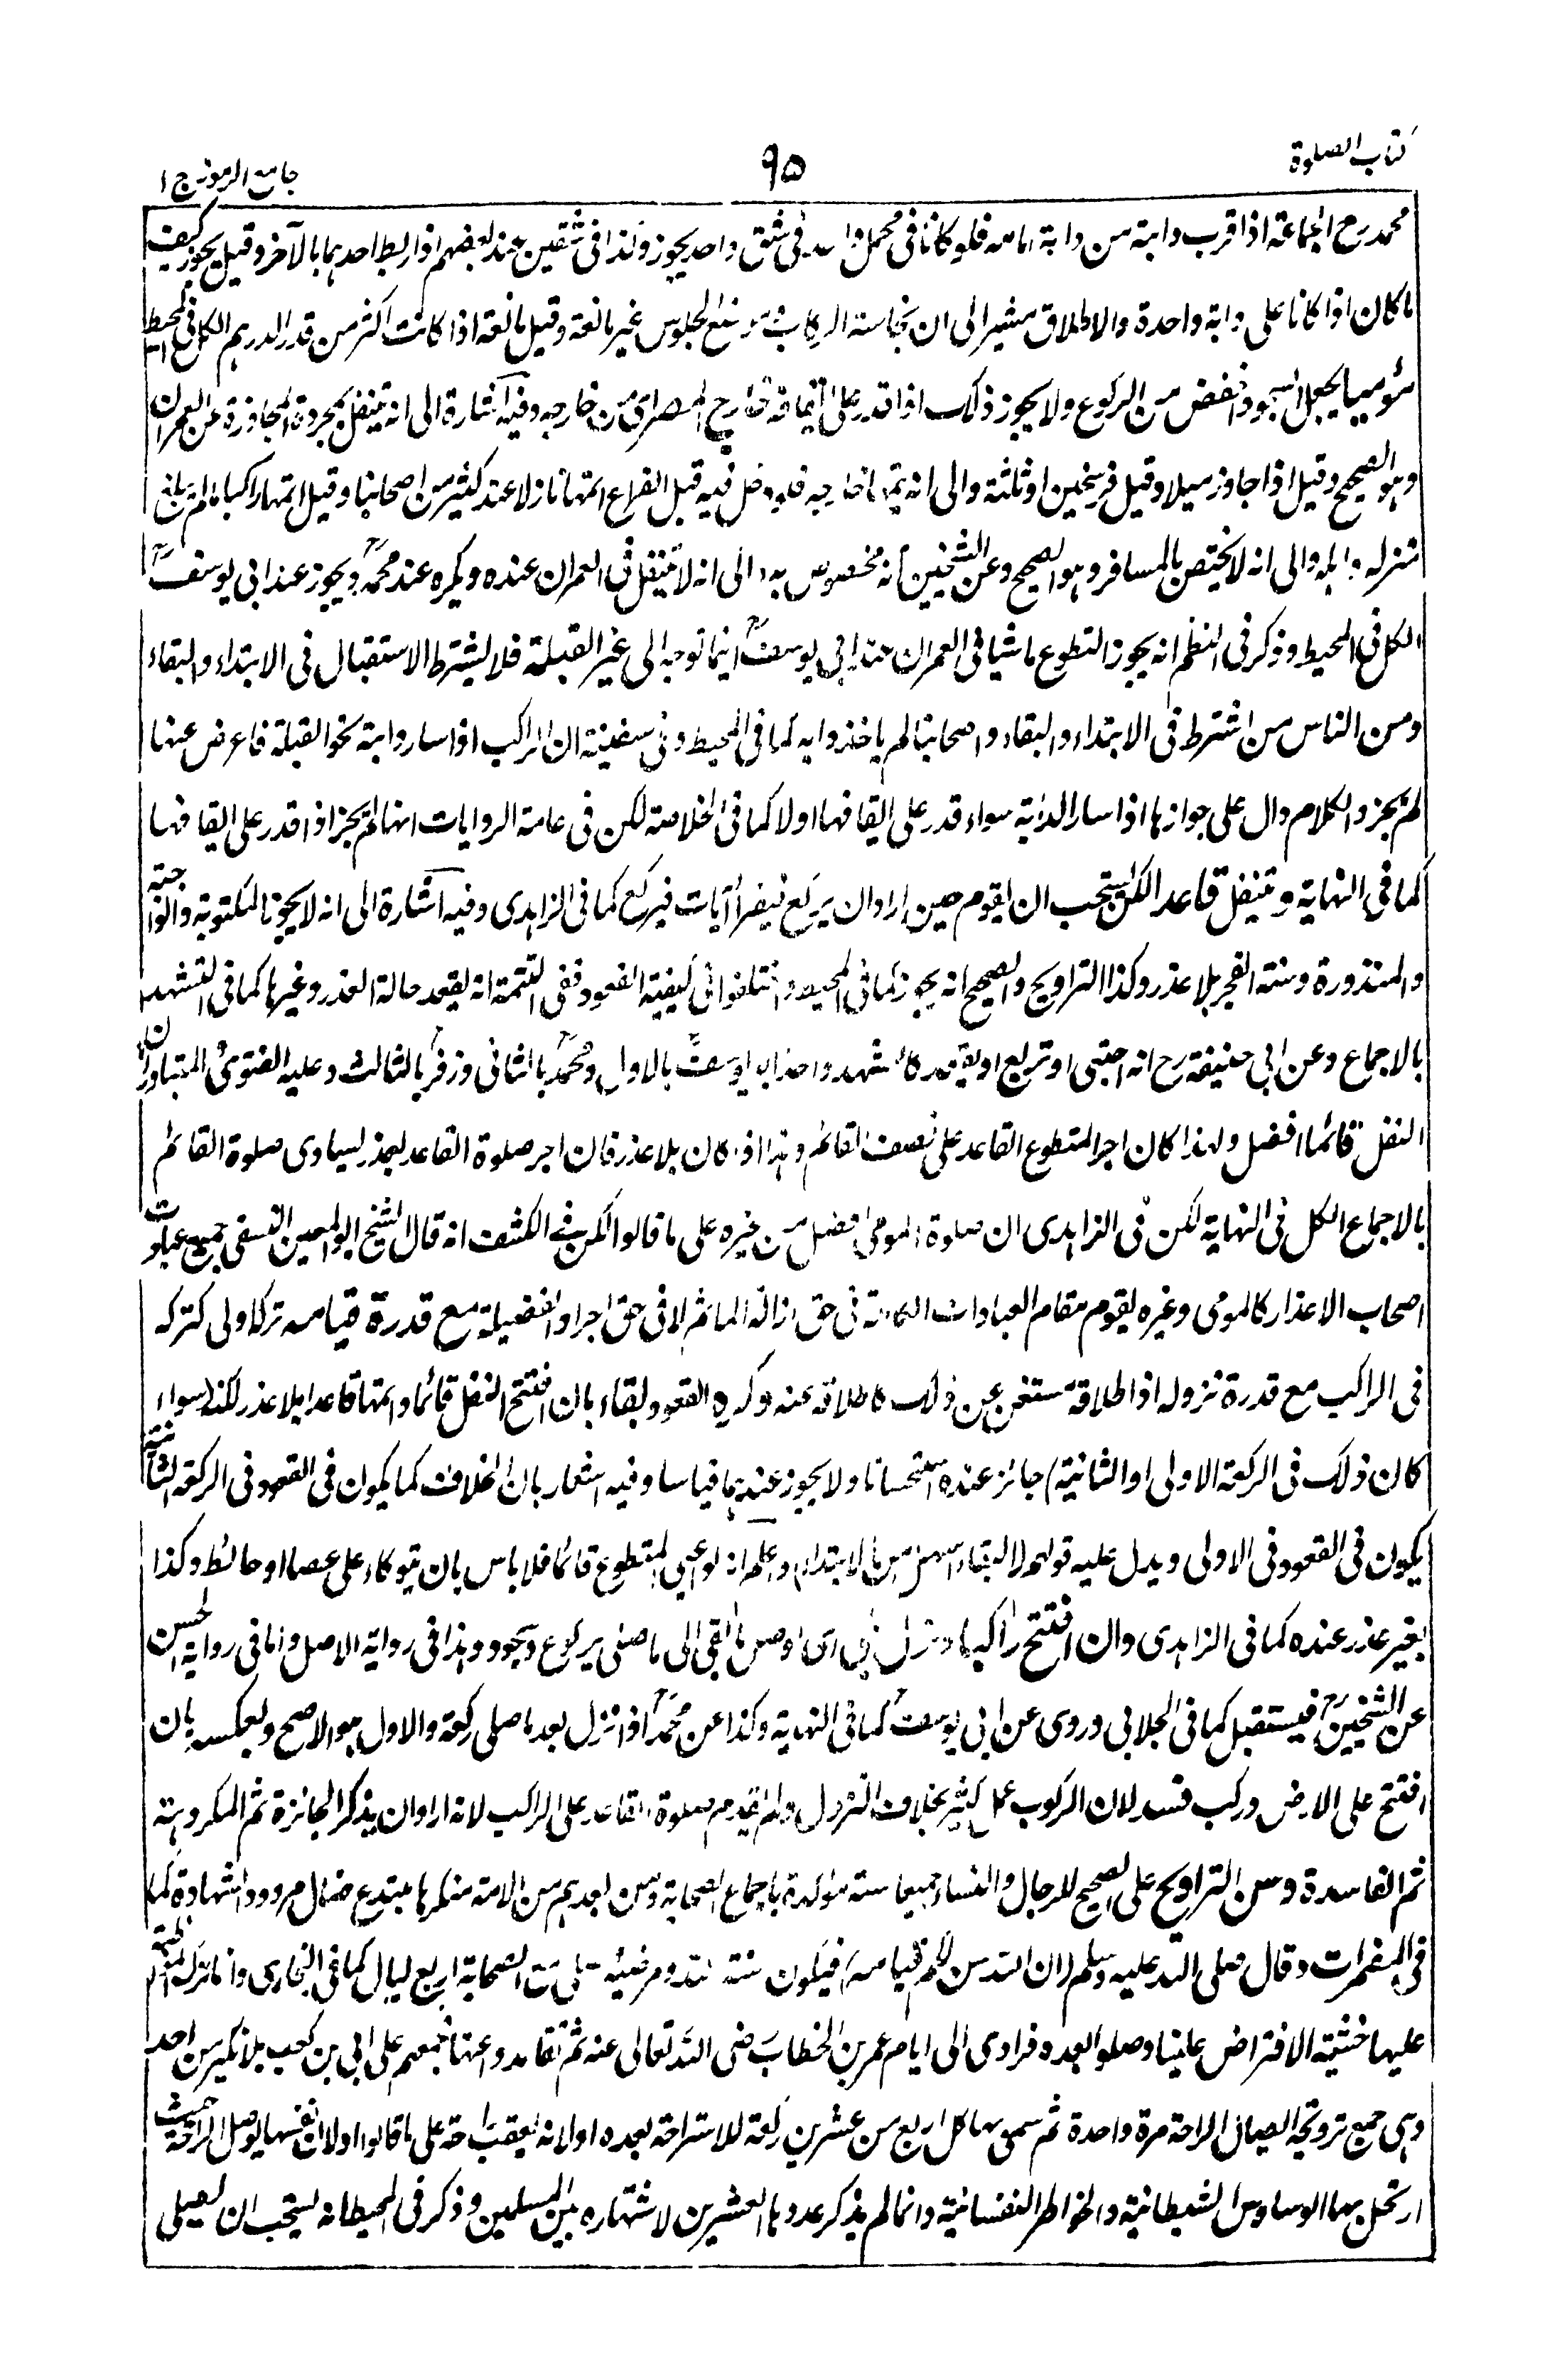 كتاب الصلوة
٩٥
جامع الرموز ج ١
محمد رح الجماعة اذا قرب دابته من دابة امامه فلو كانا فى محمل واحد فى شق واحد يجوز وكذا فى شقين عند بعضهم اذا ربط احدهما بالآخر وقيل يجوز كيف
ما كان اذا كانا على دابة واحدة والاطلاق مشير الى ان نجاسة الركاب وموضع الجلوس غير مانعة وقيل مانعة اذا كانت اكثر من قدر الدرهم الكل فى المحيط
مؤميا يجعل السجود اخفض من الركوع ولا يجوز ذلك اذا قدر على خارج المصر من خارجه وفيه اشارة الى انه يتنفل بمجرد المجاوزة عن العمران
وهو الصحيح وقيل اذا جاوز ميلا وقيل فرسخين او ثلثة والى انه يتم خارجه فلو دخل فيه قبل الفراغ اتمها نازلا عند كثير من اصحابنا وقيل اتمها راكبا ما لم يبلغ
منزله واهله والى انه لا يختص بالمسافر وهو الصحيح وعن الشيخين انه مخصوص به والى انه لا يتنفل فى العمران عنده ويكره عند محمد ويجوز عند ابى يوسف
الكل فى المحيط وذكر فى النظم انه يجوز التطوع ماشيا فى العمران عند ابى يوسف اينما توجه الى غير القبلة فلا يشترط الاستقبال فى الابتداء والبقاء
ومن الناس من اشترط فى الابتداء والبقاء واصحابنا لم ياخذوا به كما فى المحيط وفى سفينة ان الراكب اذا سار دابته نحو القبلة فاعرض عنها
لم يجز والكلام دال على جوازها اذا سار الدابة سواء قدر على ايقافها اولا كما فى الخلاصة لكن فى عامة الروايات انها لم يجز اذا قدر على ايقافها
كما فى النهاية ويتنفل قاعدا لكن يستحب ان يقوم حين اراد ان يركع فيقرأ آيات فيركع كما فى الزاهدى وفيه اشارة الى انه لا يجوز المكتوبة والواجبة
والمنذورة وسنة الفجر بلا عذر وكذا التراويح والصحيح انه يجوز كما فى المحيط واختلفوا فى كيفية القعود ففى التتمة انه يقعد حالة العذر وغيرها كما فى التشهد
بالاجماع وعن ابى حنيفة رح انه احتبى او تربع او يقعد كالتشهد واخذ ابو يوسف بالاول ومحمد بالثانى وزفر بالثالث وعليه الفتوى المتبادر ان
النفل قائما افضل ولهذا كان اجر المتطوع القاعد على نصف القائم وهذا اذا كان بلا عذر فان اجر صلوة القاعد بعذر ليساوى صلوة القائم
بالاجماع الكل فى النهاية لكن فى الزاهدى ان صلوة المومى افضل من غيره على ما قالوا لكن فى الكشف انه قال الشيخ ابو المعين النسفى جميع عبادات
اصحاب الاعذار كالمومى وغيره يقوم مقام العبادات الكاملة فى حق ازالة الماثم لا فى حق احراز الفضيلة مع قدرة قيامه تركا ولى كتركه
فى الراكب مع قدرة نزوله اذ اطلاقه مستغن عن ذلك كاطلاقه عنه وكره القعود بقاء بان افتتح النفل قائما واتمها قاعدا بلا عذر لكنه سواء
كان ذلك فى الركعة الاولى او الثانية جائز عنده استحسانا ولا يجوز عندهما قياسا وفيه اشعار بان الخلاف كما يكون فى القعود فى الركعة الثانية
يكون فى القعود فى الاولى ويدل عليه قولهم لا البقاء اسهل من الابتداء واعلم انه لو اعيى المتطوع قائما فلا باس بان يتوكاء على عصا او حائط وكذا
بغير عذر عنده كما فى الزاهدى وان افتتح راكبا ونزل بنى اى اوصل ما بقى الى ما صلى بركوع وسجود وهذا فى رواية الاصل واما فى رواية الحسن
عن الشيخين رح فيستقبل كما فى الجلابى وروى عن ابى يوسف كما فى النهاية وكذا عن محمد اذا نزل بعد ما صلى ركعة والاول هو الاصح وبعكسه بان
افتتح على الارض وركب فسد لان الركوب عمل كثير بخلاف النزول ولم يقدم صلوة القاعد على الراكب لانه اراد ان يذكر الجائزة ثم المكروهة
ثم الفاسدة وسن التراويح على الصحيح للرجال والنساء جميعا سنة مؤكدة باجماع الصحابة ومن بعدهم من الامة منكرها مبتدع ضال مردود الشهادة كما
فى المضمرات وقال صلى الله عليه وسلم ان الله سن لكم قيامه فيكون سنة الله ومرضيه صلى مع الصحابة اربع ليال كما فى البخارى وانما ترك المواظبة
عليها خشية الافتراض علينا وصلوا بعده فرادى الى ايام عمر بن الخطاب رضى الله تعالى عنه ثم تقاعدوا عنها فجمعهم على ابى بن كعب بلا نكير من احد
وهى جمع ترويحة ايصال الراحة مرة واحدة ثم سمى بها كل اربع من عشرين ركعة للاستراحة بعده او لانه يعقب راحة على ما قالوا او لان نفسها يوصل الراحة حيث
ارتحل بها الوساوس الشيطانية والخواطر النفسانية وانما لم يذكر عددها العشرين لاشتهاره بين المسلمين وذكر فى المحيط انه يستحب ان يصلى